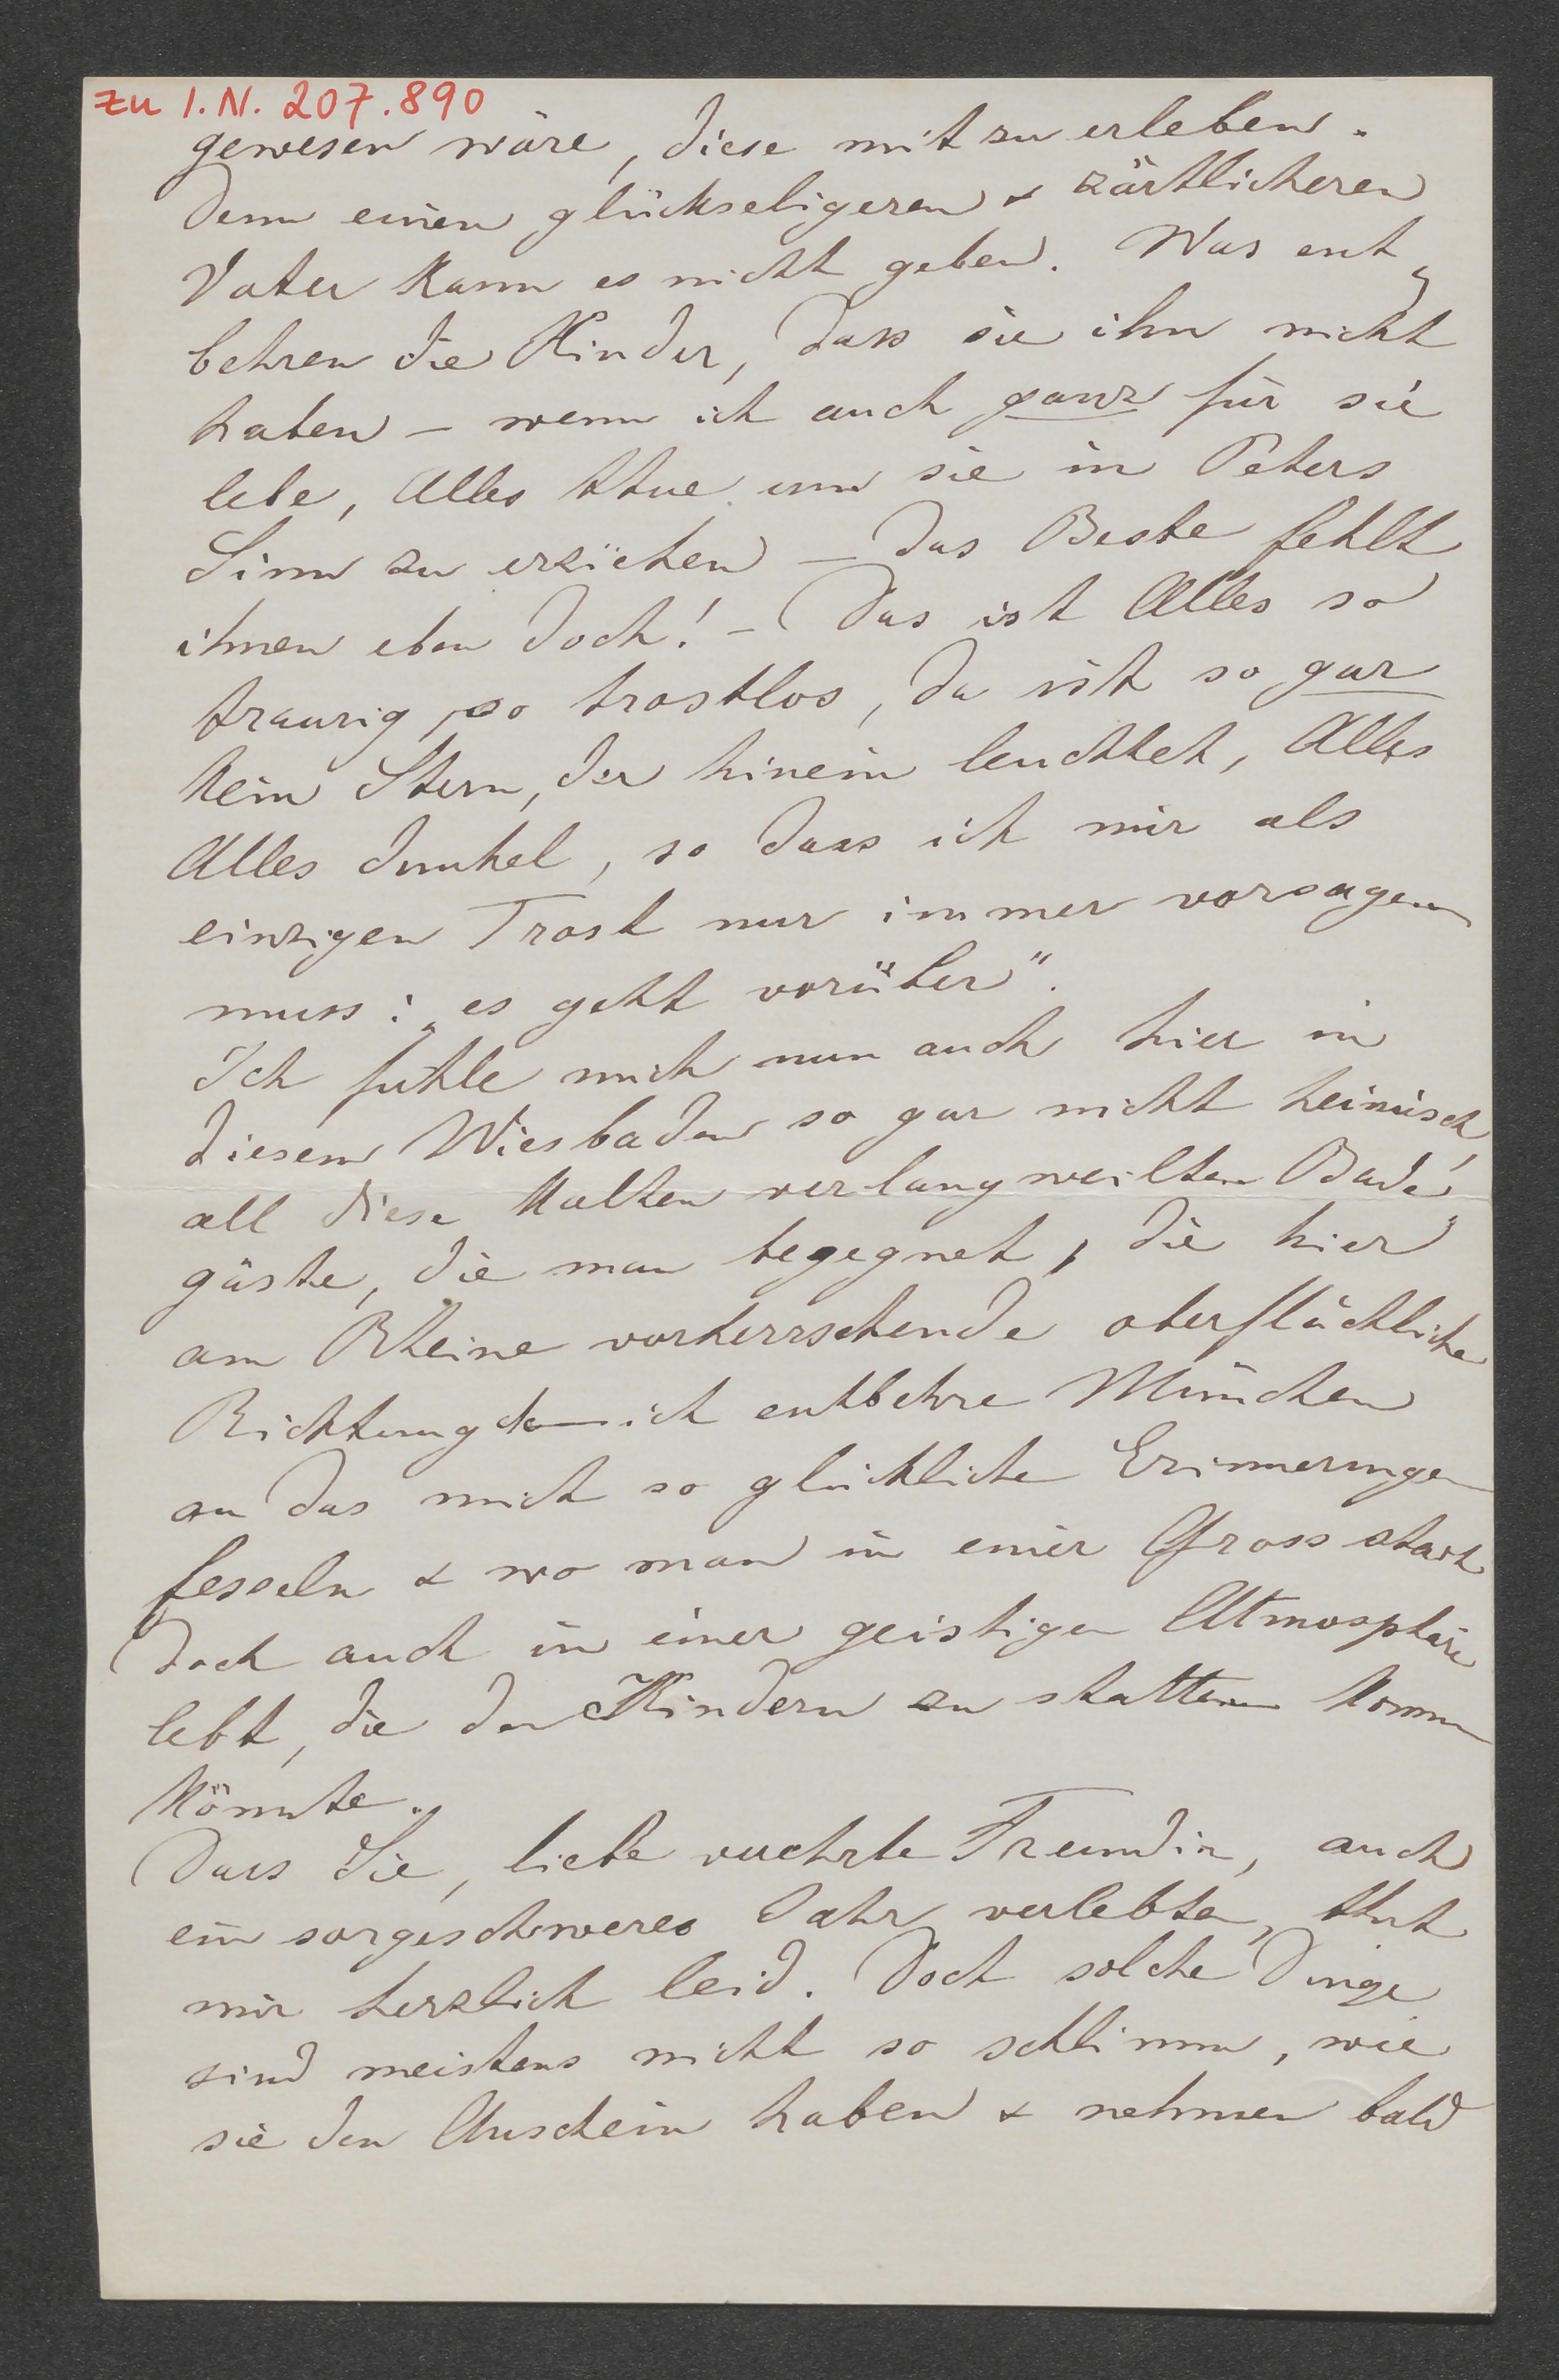 zu I.N. 207.890
gewesen wäre, diese mit zu erleben.
Denn einen glückseligeren & zärtlicheren
Vater kann es nicht geben. Was ent-
behren die Kinder, dass sie ihn nicht
haben – wenn ich auch ganz für sie
lebe, Alles thue um sie in Peters
Sinn zu erziehen – das Beste fehlt
ihnen eben doch! – Das ist Alles so
traurig, so trostlos, da ist so gar
kein Stern, der hinein leuchtet, Alles
Alles dunkel, so dass ich mir als
einzigen Trost nur immer vorsagen
muss: „es geht vorüber“.
Ich fühle mich nun auch hier in
diesem Wiesbaden so gar nicht heimisch,
all diese kalten verlangweilten Bade-
gäste, die man begegnet, die hier
am Rheine vorherrschende oberflächliche
Richtung ich entbehre München
an das mich so glückliche Erinnerungen
fesseln & wo man in einer Grossstadt
doch auch in einer geistigen Atmosphäre
lebt, die den Kindern zu statten kommen
könnte.
Dass Sie, liebe verehrte Freundin, auch
ein sorgeschweres Jahr verlebten, thut
mir herzlich leid. Doch solche Dinge
sind meistens nicht so schlimm, wie
sie den Anschein haben & nehmen bald